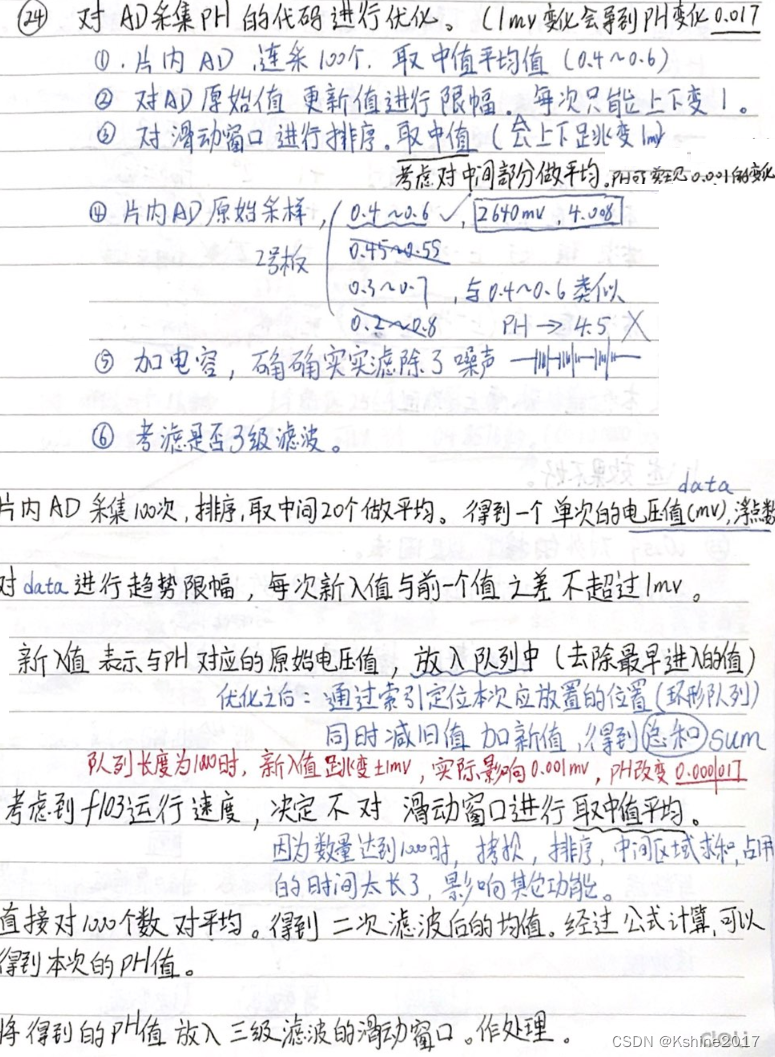 ㉔ 对AD采集PH的代码进行优化。(1mv变化会导致PH变化0.017
①.片内AD,连采100个.取中值平均值(0.4~0.6)
② 对AD原始值 更新值进行限幅.每次只能上下变1。
③ 对滑动窗口进行排序.取中值(会上下跳变1mv)
考虑对中间部分做平均.PH可实现0.001的变化
④ 片内AD原始采样,(0.4~0.6 ✓, 2640mv, 4.008
2号板
0.45~0.55
0.3~0.7,与0.4~0.6类似
0.2~0.8 PH→4.5 ╳
⑤ 加电容,确确实实滤除了噪声
⑥ 考滤是否3级滤波。
data
片内AD采集100次,排序,取中间20个做平均。得到一个单次的电压值(mv),浮点数
对data进行趋势限幅,每次新入值与前一个值之差不超过1mv。
新入值 表示与PH对应的原始电压值,放入队列中(去除最早进入的值)
优化之后:通过索引定位本次应放置的位置(环形队列)
同时减旧值 加新值,得到总和sum
队列长度为1000时,新入值跳变±1mv,实际影响0.001mv,PH改变0.000017
考虑到f103运行速度,决定不对 滑动窗口进行取中值平均。
因为数量达到1000时,拷贝,排序,中间区域求和,占用
的时间太长了,影响其它功能。
直接对1000个数对平均。得到二次滤波后的均值。经过公式计算,可以
得到本次的PH值。
将得到的PH值放入三级滤波的滑动窗口。作处理。
CSDN @Kshine2017